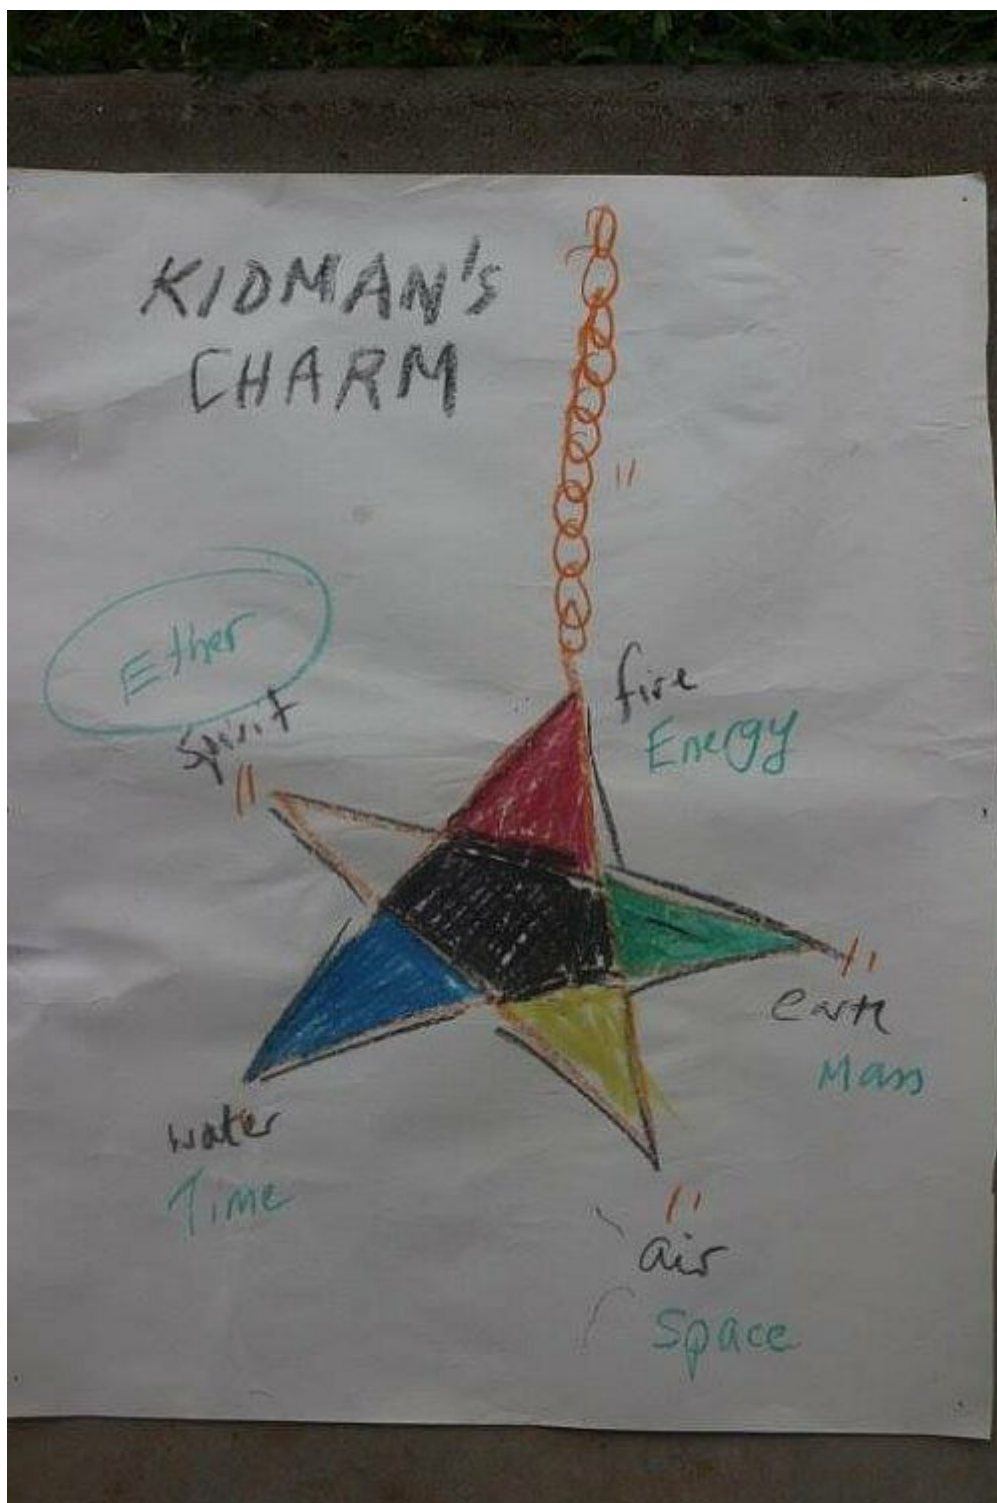 KIDMAN'S
CHARM
Ether
spirit
fire
Energy
earth
Mass
water
Time
air
Space